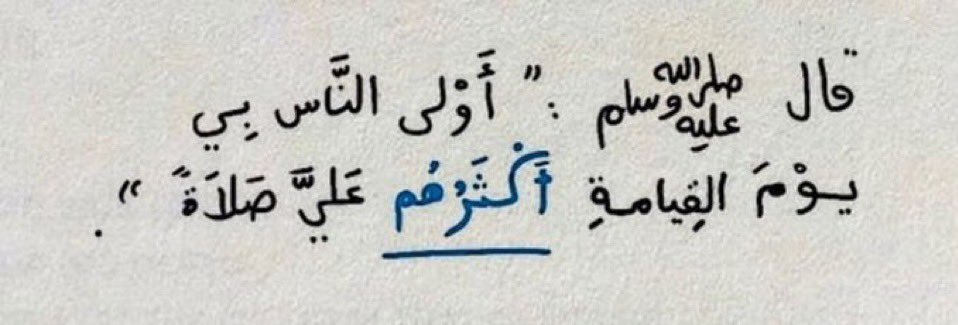 قال صلى الله عليه وسلم : " أَوْلى النَّاس بِي
يوْمَ القِيامةِ أَكْثَرُهُم عَليَّ صَلَاَةً " .